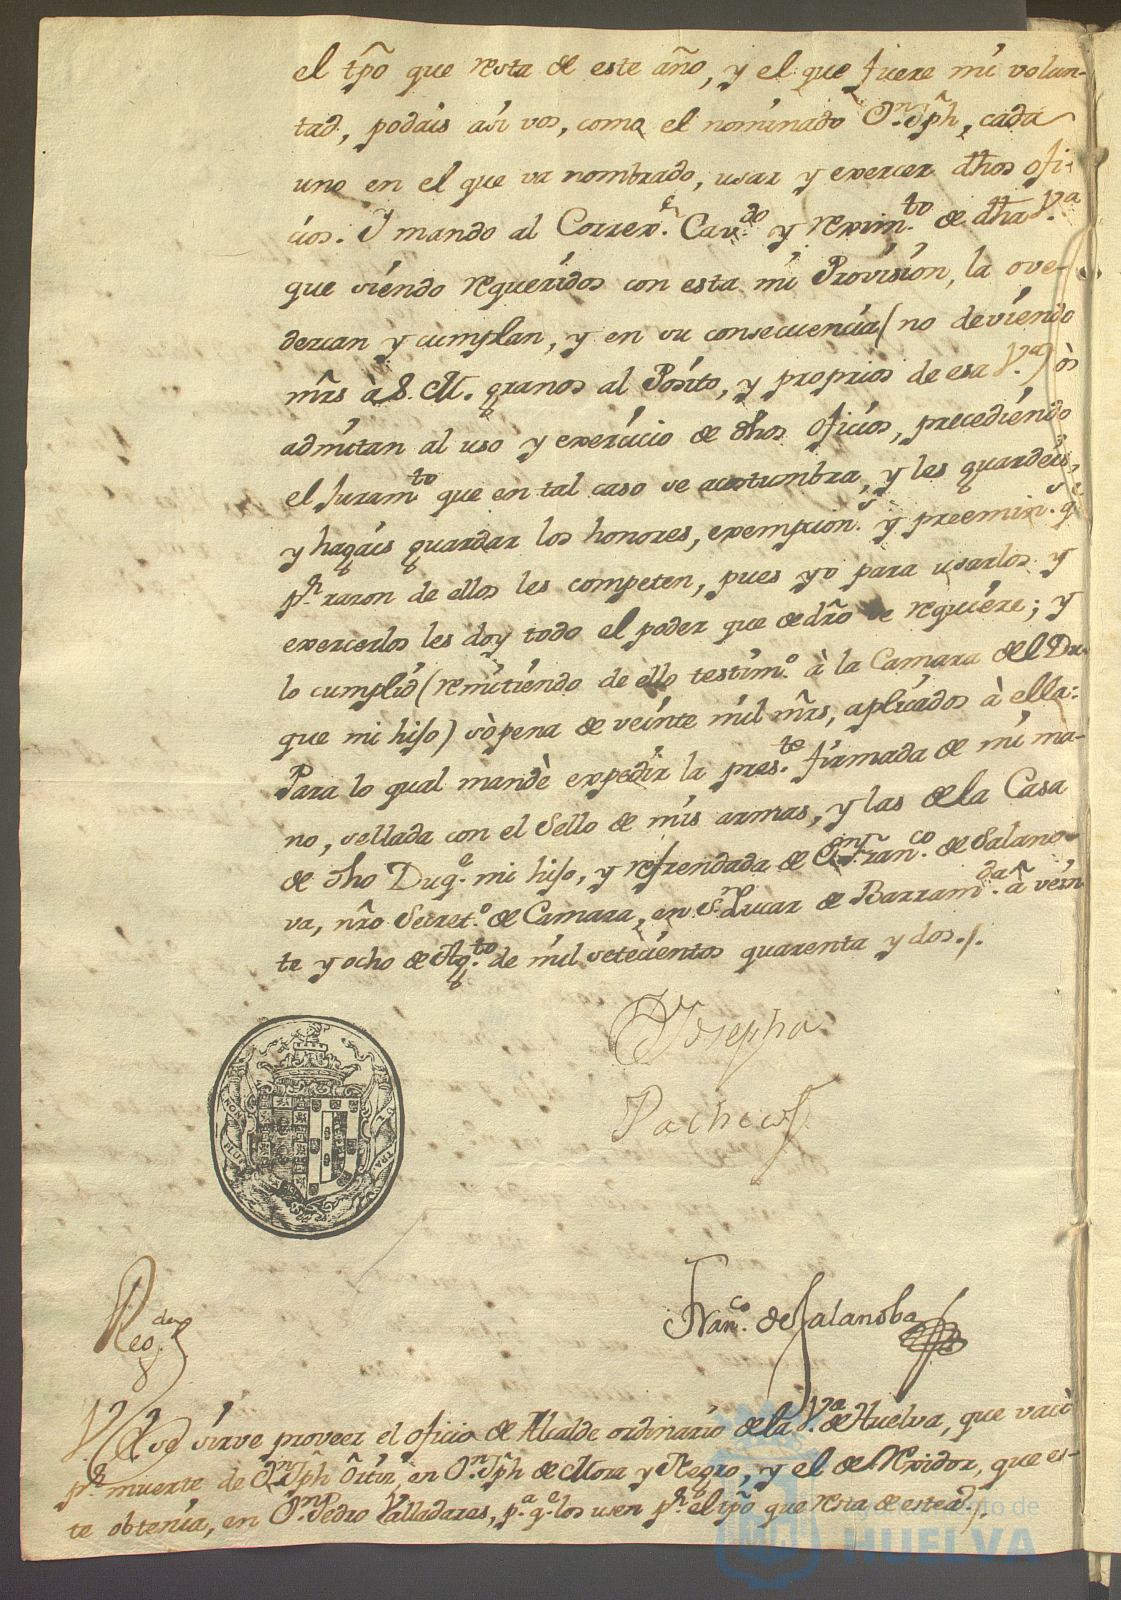 el tp̃o que resta de este año, y el que fuere mi volun-
tad, podais asi vos, como el nominado Dn. Jph, cada
uno en el que va nombrado, usar y exercer dhos ofi-
cios. Y mando al Correxr. Cavdo. y reximto. de dha Va.
que siendo requeridos con esta mi Provision, la ove-
dezcan y cumplan, y en su consecuencia (no deviendo
mr̃s à S. M. granos al Posito, y proprios de esa Va.) òs
admitan al uso y exercicio de dhos oficios, precediendo
el Juramto que en tal caso se acostumbra, y les guardeis,
y hagais guardar los honores, exempcions. y preemins. qe
pr. razon de ellos les competen, pues yo para usarlos y
exercerlos les doy todo el poder que de dr̃o se requiere; y
lo cumplid (remitiendo de ello testimo. à la Camara del Du-
que mi hijo) sò pena de veinte mil mr̃s, aplicados à ella:
Para lo qual mandè expedir la preste. firmada de mi ma-
no, sellada con el Sello de mis armas, y las de la Casa
de dho Duqe. mi hijo, y refrendada de Dn. Franco. de Salano-
va, nr̃o Secreto. de Camara, en Sn. Lucar de Barramda. â vein
te y ocho de Agto. de mil setecientos quarenta y dos./.
Josepha
Pacheco
NON PLUS ULTRA
Franco. de Salanoba
Regda.
V. E. se sirve proveer el oficio de Alcalde ordinario de la Va. de Huelva, que vacò
pr. muerte de Dn. Jph Ortiz, en Dn. Jph de Mora y Negro, y el de Rexidor, que es-
te obtenia, en Dn. Pedro Valladares, pa. qe. los usen pr. el tp̃o que resta de este a.
Ayuntamiento de
HUELVA